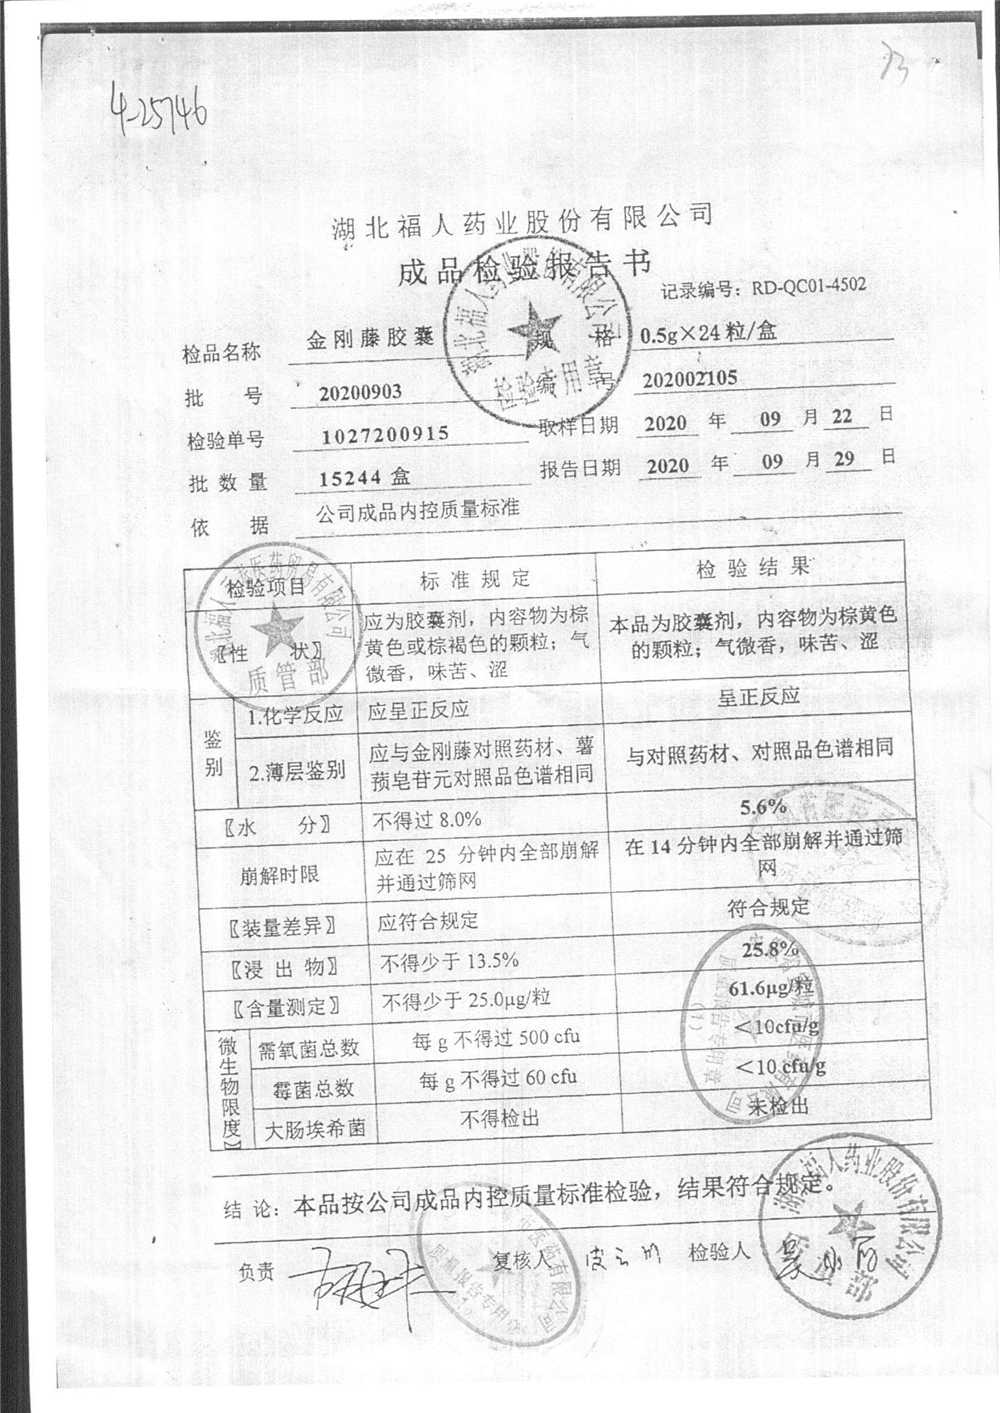 33
4-25746
湖北福人药业股份有限公司
成品检验报告书
记录编号：RD-QC01-4502
检品名称 金刚藤胶囊 规 格 0.5g×24粒/盒
批 号 20200903 编 号 202002105
检验单号 1027200915 取样日期 2020 年 09 月 22 日
批 数 量 15244 盒 报告日期 2020 年 09 月 29 日
依 据 公司成品内控质量标准
检验项目 标 准 规 定 检 验 结 果
〖性 状〗 应为胶囊剂，内容物为棕黄色或棕褐色的颗粒；气微香，味苦、涩 本品为胶囊剂，内容物为棕黄色的颗粒；气微香，味苦、涩
鉴别 1.化学反应 应呈正反应 呈正反应
2.薄层鉴别 应与金刚藤对照药材、薯蓣皂苷元对照品色谱相同 与对照药材、对照品色谱相同
〖水 分〗 不得过 8.0% 5.6%
崩解时限 应在 25 分钟内全部崩解并通过筛网 在 14 分钟内全部崩解并通过筛网
〖装量差异〗 应符合规定 符合规定
〖浸 出 物〗 不得少于 13.5% 25.8%
〖含量测定〗 不得少于 25.0μg/粒 61.6μg/粒
微生物限度〗 需氧菌总数 每 g 不得过 500 cfu ＜10cfu/g
霉菌总数 每 g 不得过 60 cfu ＜10 cfu/g
大肠埃希菌 不得检出 未检出
结 论：本品按公司成品内控质量标准检验，结果符合规定。
负责 复核人 检验人
湖北福人药业股份有限公司
检验专用章
质管部
湖北福人药业股份有限公司
质管部